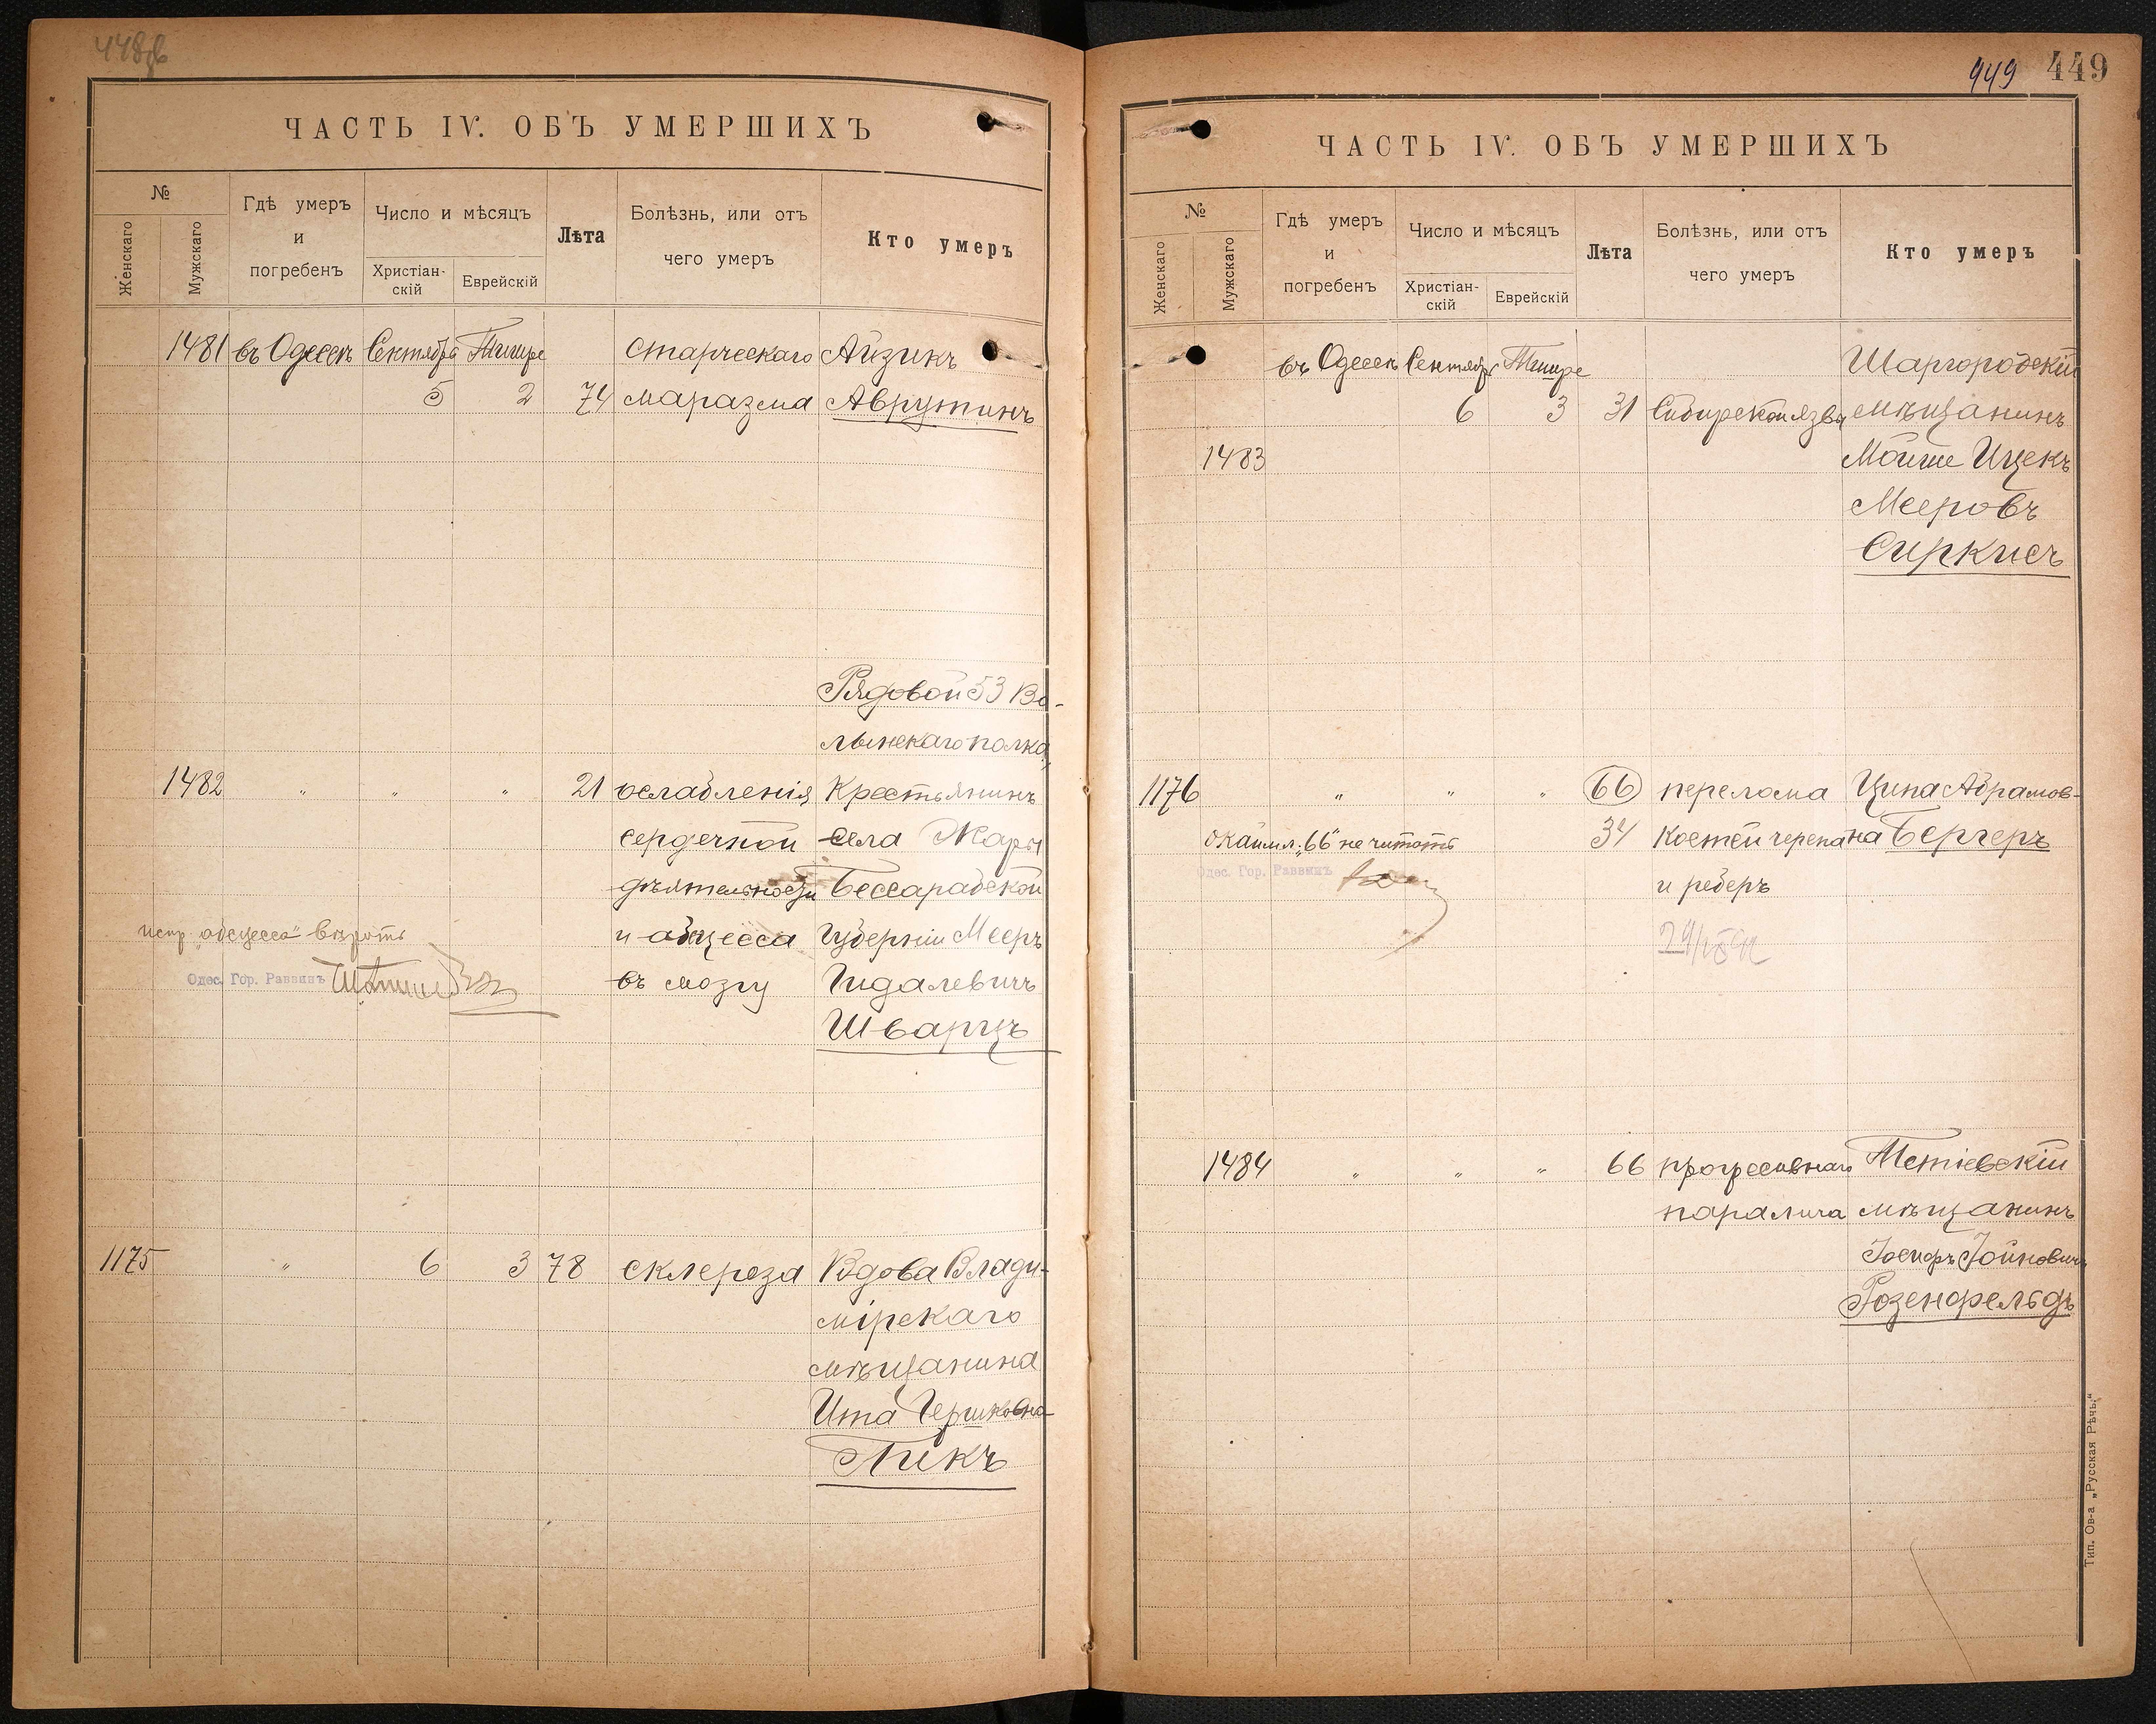 448об
ЧАСТЬ IV. ОБЪ УМЕРШИХЪ
№
Женскаго
Мужскаго
Гдѣ умеръ
и
погребенъ
Число и мѣсяцъ
Христіан-
скій
Еврейскій
Лѣта
Болѣзнь, или отъ
чего умеръ
Кто умеръ
1481 въ Одессѣ Сентябрь Тишре старческаго Айзикъ
5 2 74 маразма Аврутинъ
Рядовой 53 Во-
лынскаго полка,
1482 " " " 21 ослабленія Крестьянинъ
сердечной села Жары
дѣятельности Бессарабской
испр. „абсцесса" вѣрить
и абсцесса Губерніи Мееръ
Одес. Гор. Раввинъ
въ мозгу Гидалевичъ
Шварцъ
1175 " 6 3 78 склероза Вдова Влади-
мірскаго
мѣщанина
Ита Гершковна
Пикъ
949 449
ЧАСТЬ IV. ОБЪ УМЕРШИХЪ
№
Женскаго
Мужскаго
Гдѣ умеръ
и
погребенъ
Число и мѣсяцъ
Христіан-
скій
Еврейскій
Лѣта
Болѣзнь, или отъ
чего умеръ
Кто умеръ
въ Одессѣ Сентябрь Тишре Шаргородскій
6 3 31 Сибирской язвы мѣщанинъ
1483 Мойше Ицекъ
Мееровъ
Сиркисъ
1176 " " " 66 перелома Ципа Абрамов-
окаймл. „66" не читать 34 костей черепа на Бергеръ
Одес. Гор. Раввинъ
и реберъ
1484 " " " 66 прогрессивнаго Тетіевскій
паралича мѣщанинъ
Іосифъ Іойновичъ
Розенфельдъ
Тип. Ов-а „Русская Рѣчь."